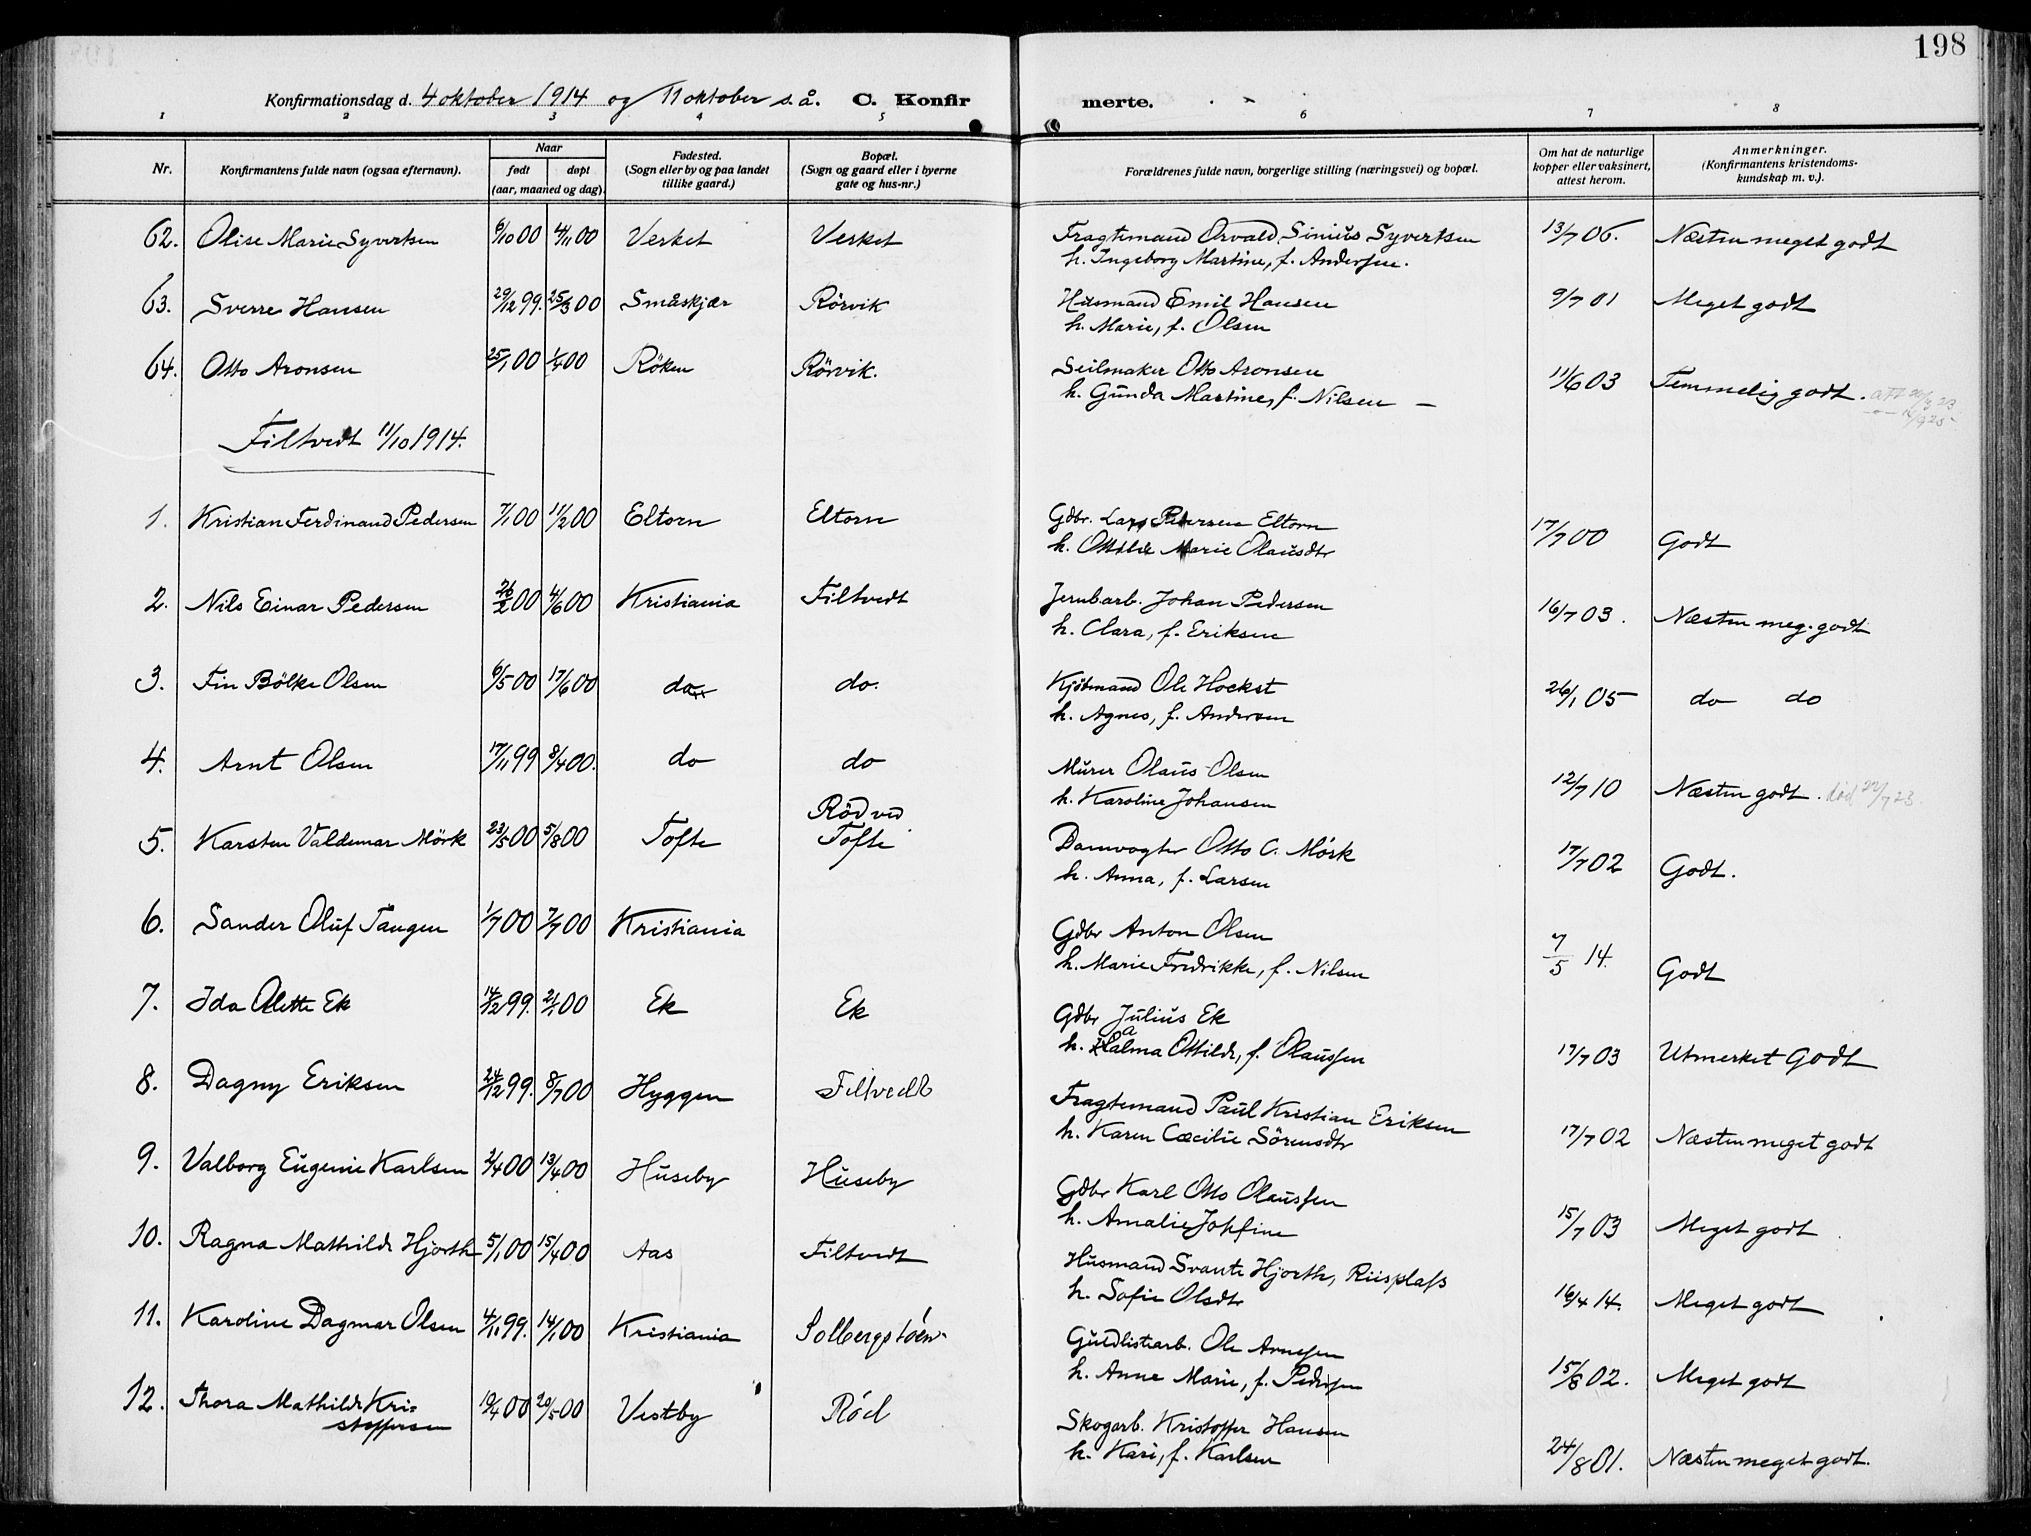 198
Konfirmationsdag d. 4 oktober 1914 og 11 oktober s.å. C. Konfirmerte.
1 2 3 4 5 6 7 8
Nr.
Konfirmantens fulde navn (ogsaa efternavn).
Naar
født
døpt
(aar, maaned og dag).
Fødested.
(Sogn eller by og paa landet
tillike gaard.)
Bopæl.
(Sogn og gaard eller i byerne
gate og hus-nr.)
Forældrenes fulde navn, borgerlige stilling (næringsvei) og bopæl.
Om hat de naturlige
kopper eller vaksinert,
attest herom.
Anmerkninger.
(Konfirmantens kristendoms-
kundskap m. v.).
62. Olise Marie Syvertsen 6/10 00 4/11 00 Verket Verket Fragtemand Orvald Sinius Syvertsen 13/7 06. Næsten meget godt
h. Ingeborg Martine, f. Andersen.
63. Sverre Hansen 29/12 99. 25/3 00 Småskjær Rörvik Husmand Emil Hansen 9/7 01 Meget godt
h. Marie, f. Olsen
64. Otto Aronsen 25/1 00 1/4 00 Röken Rörvik. Seilmaker Otto Aronsen 11/6 03 Temmelig godt.
h. Gunda Martine, f. Nilsen —
Filtvedt 11/10 1914.
1. Kristian Ferdinand Pedersen 7/1 00 11/2 00 Eltorn Eltorn Gdbr. Lars Pedersen Eltorn 17/7 00 Godt
h. Ottilde Marie Olausdtr
2. Nils Einar Pedersen 26/2 00 4/6 00 Kristiania Filtvedt Jernbarb. Johan Pedersen 16/7 03. Næsten meg. godt
h. Clara, f. Eriksen
3. Fin Bölke Olsen 6/5 00 17/6 00 do do. Kjöbmand Ole Hockst 26/1 05 do do
h. Agnes, f. Andersen
4. Arnt Olsen 17/11 99 8/4 00. do do Murer Olaus Olsen 12/7 10 Næsten godt. död 22/7 23.
h. Karoline Johansen
5. Karsten Valdemar Mörk 23/5 00 5/8 00 Tofte Röd ved
Tofte Damvogter Otto C. Mörk 17/7 02 Godt.
h. Anna, f. Larsen
6. Sander Oluf Tangen 1/7 00 7/7 00 Kristiania Gdbr Anton Olsen 7/5 14. Godt
h. Marie Fredrikke, f. Nilsen
7. Ida Olette Ek 14/12 99. 2/1 00 Ek Ek Gdbr Julius Ek 17/7 03 Utmerket Godt
h. Palma Ottilde, f. Olaussen
8. Dagny Eriksen 24/12 99. 8/7 00 Hyggen Filtvedt Fragtemand Paul Kristian Eriksen 17/7 02 Næsten meget godt
h. Karen Cæcilie Sörensdtr
9. Valborg Eugenie Karlsen 2/4 00 13/4 00 Huseby Huseby Gdbr Karl Otto Olaussen 15/7 03 Meget godt
h. Amalie Josefine
10. Ragna Mathilde Hjorth 5/1 00 15/4 00 Aas Filtvedt Husmand Svante Hjorth, Riisplass 16/4 14. Meget godt
h. Sofie Olsdtr
11. Karoline Dagmar Olsen 4/11 99. 14/1 00 Kristiania Solbergstöen Guldlistarb. Ole Arnesen 15/8 02. Meget godt
h. Anne Marie, f. Pedersen
12. Thora Mathilde Kri-
stoffersen 19/4 00 20/5 00 Vestby Röd Skogarb. Kristoffer Hansen 24/8 01. Næsten meget godt.
h. Kari, f. Karlsen